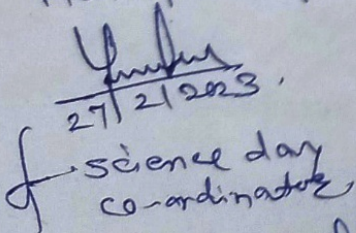 27/2/2023.
science day
co-ordinator